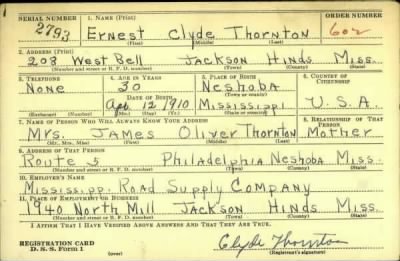 SERIAL NUMBER 1. NAME (Print) ORDER NUMBER
2793 Ernest Clyde Thornton 602
(First) (Middle) (Last)
2. ADDRESS (Print)
208 West Bell Jackson Hinds Miss.
(Number and street or R. F. D. number) (Town) (County) (State)
3. TELEPHONE 4. AGE IN YEARS 5. PLACE OF BIRTH 6. COUNTRY OF CITIZENSHIP
None 30 Neshoba
DATE OF BIRTH (Town or county)
Apr. 12 1910 Mississippi U.S.A.
(Exchange) (Number) (Mo.) (Day) (Yr.) (State or country)
7. NAME OF PERSON WHO WILL ALWAYS KNOW YOUR ADDRESS 8. RELATIONSHIP OF THAT PERSON
Mrs. James Oliver Thornton Mother
(Mr., Mrs., Miss) (First) (Middle) (Last)
9. ADDRESS OF THAT PERSON
Route 5 Philadelphia Neshoba Miss.
(Number and street or R. F. D. number) (Town) (County) (State)
10. EMPLOYER'S NAME
Mississippi Road Supply Company
11. PLACE OF EMPLOYMENT OR BUSINESS
1940 North Mill Jackson Hinds Miss.
(Number and street or R. F. D. number) (Town) (County) (State)
I AFFIRM THAT I HAVE VERIFIED ABOVE ANSWERS AND THAT THEY ARE TRUE.
Clyde Thornton
REGISTRATION CARD
D. S. S. Form 1 (over) (Registrant's signature)